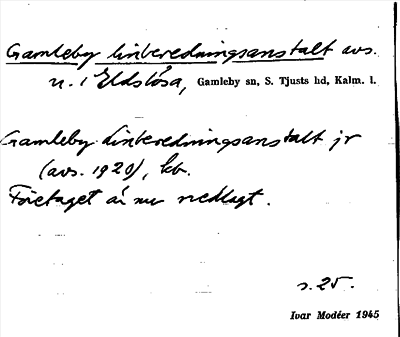 Gamleby linberedningsanstalt avs.
n. i Eldslösa, Gamleby sn, S. Tjusts hd, Kalm. l.
Gamleby linberedningsanstalt jr
(avs. 1920), kb.
Företaget är nu nedlagt.
s. 25.
Ivar Modéer 1945